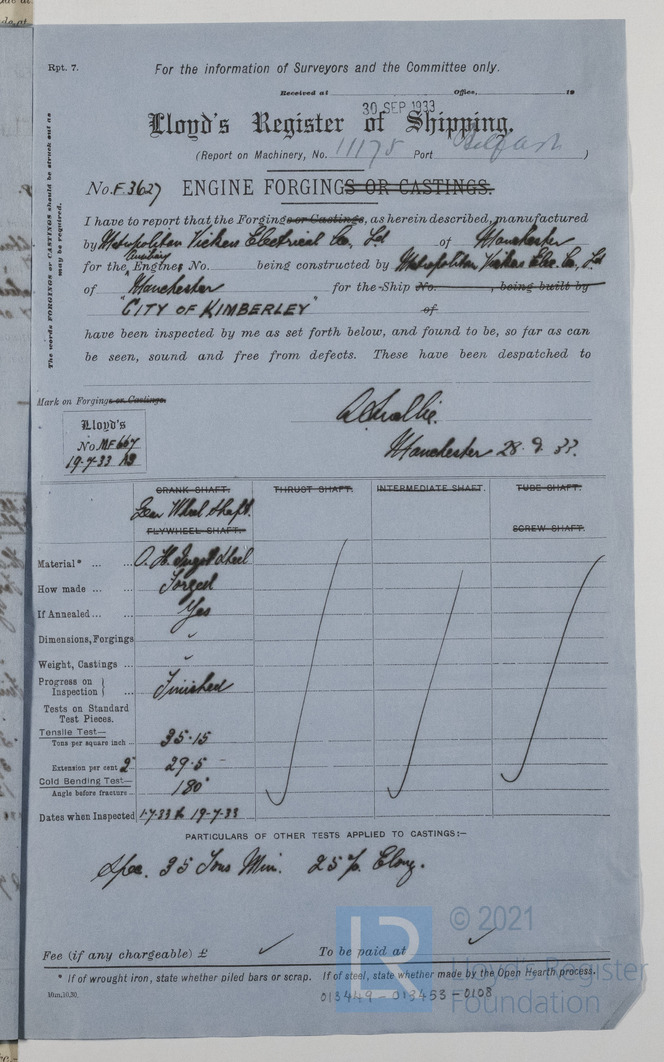 Rpt. 7.
For the information of Surveyors and the Committee only.
Received at Office, 19
30 SEP 1933
Lloyd's Register of Shipping.
(Report on Machinery, No. 11175 Port Belfast )
The words FORGINGS or CASTINGS should be struck out as may be required.
No. F.3627 ENGINE FORGINGS OR CASTINGS.
I have to report that the Forgings or Castings, as herein described, manufactured
by Metropolitan Vickers Electrical Co, Ltd of Manchester
for the Auxiliary Engines No. being constructed by Metropolitan Vickers Elec. Co, Ltd
of Manchester for the Ship No. , being built by
"CITY OF KIMBERLEY" of
have been inspected by me as set forth below, and found to be, so far as can
be seen, sound and free from defects. These have been despatched to
Mark on Forgings or Castings.
Lloyd's
No MF 667
19-7-33
Manchester 28.9.33.
CRANK SHAFT. THRUST SHAFT. INTERMEDIATE SHAFT. TUBE SHAFT.
Gear Wheel Shaft.
FLYWHEEL SHAFT. SCREW SHAFT.
Material* ... ... O. H. Ingot Steel
How made ... ... Forged
If Annealed ... ... Yes
Dimensions, Forgings
Weight, Castings ...
Progress on Inspection } ... Finished
Tests on Standard
Test Pieces.
Tensile Test—
Tons per square inch ... 35.15
Extension per cent 2" 29.5
Cold Bending Test—
Angle before fracture ... 180°
Dates when Inspected 1-7-33 to 19-7-33
PARTICULARS OF OTHER TESTS APPLIED TO CASTINGS:—
Spec. 35 Tons Min. 25% Elong.
Fee (if any chargeable) £ To be paid at
* If of wrought iron, state whether piled bars or scrap. If of steel, state whether made by the Open Hearth process.
013449-013453-0108
LR
© 2021
Lloyd's Register
Foundation